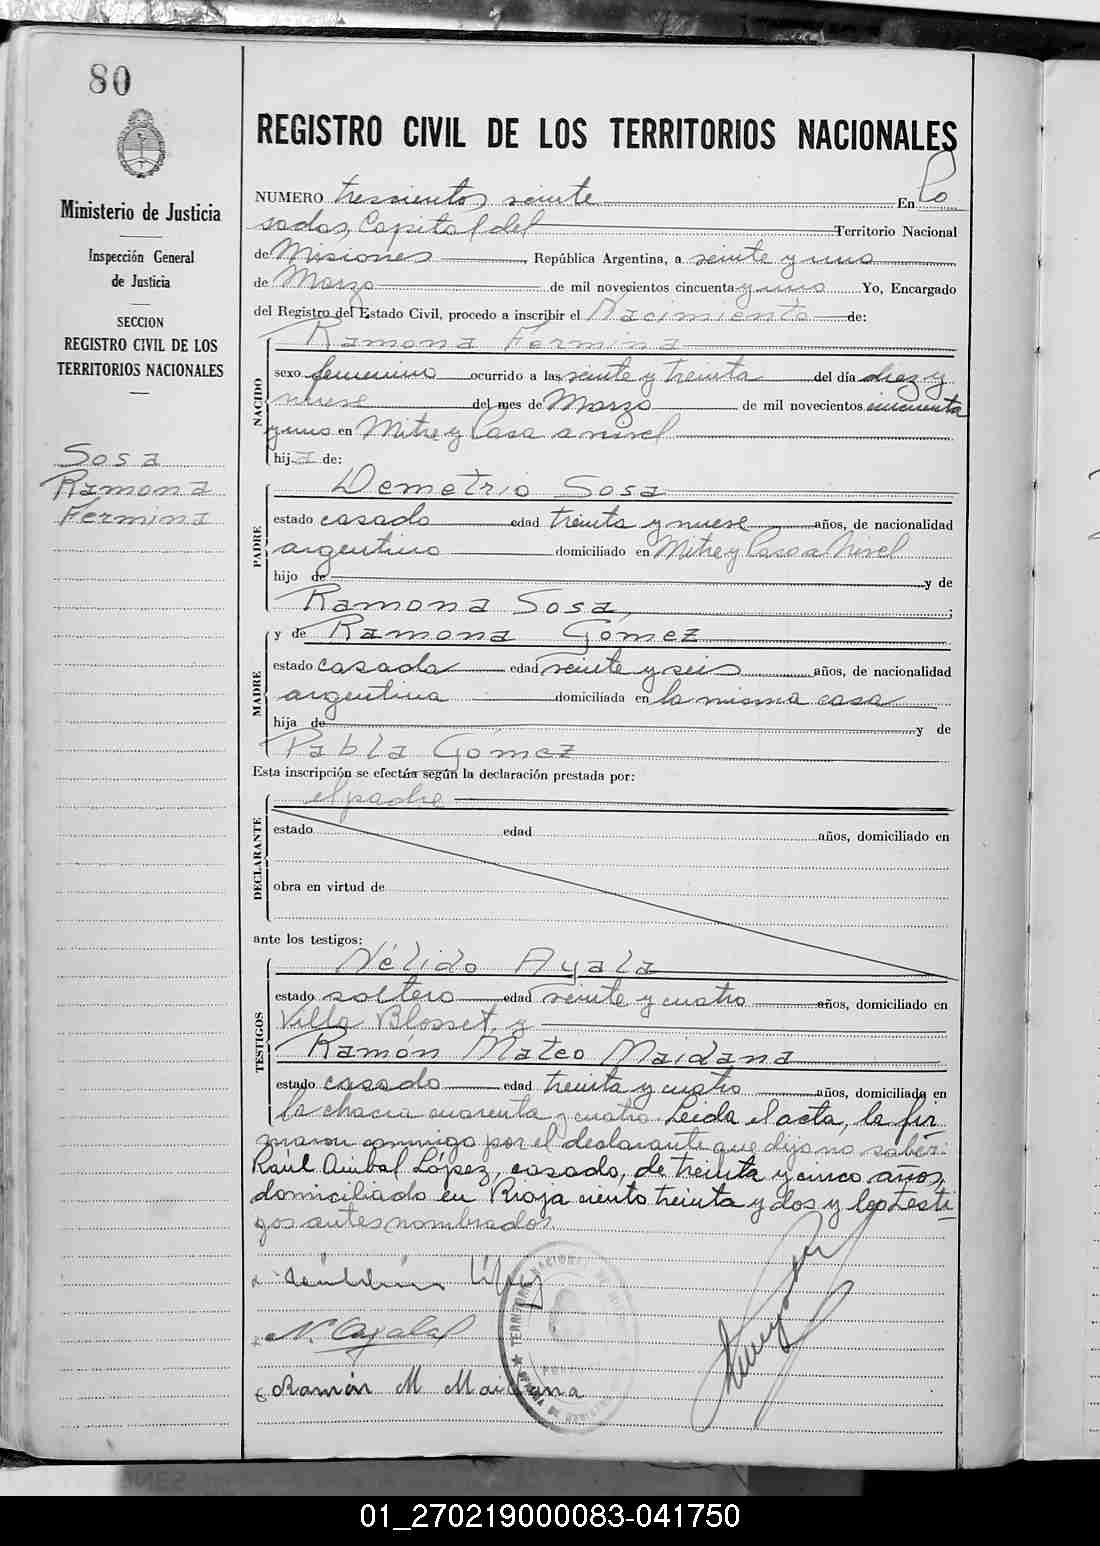 80
Ministerio de Justicia
Inspección General
de Justicia
SECCION
REGISTRO CIVIL DE LOS
TERRITORIOS NACIONALES
Sosa
Ramona
Fermina
REGISTRO CIVIL DE LOS TERRITORIOS NACIONALES
NUMERO trescientos veinte En Po
sadas, Capital del Territorio Nacional
de Misiones, República Argentina, a veinte y uno
de Marzo de mil novecientos cincuenta y uno Yo, Encargado
del Registro del Estado Civil, procedo a inscribir el Nacimiento de:
NACIDO
Ramona Fermina
sexo femenino ocurrido a las veinte y treinta del día diez y
nueve del mes de Marzo de mil novecientos cincuenta
y uno en Mitre y Paso a nivel
hija de:
PADRE
Demetrio Sosa
estado casado edad treinta y nueve años, de nacionalidad
argentino domiciliado en Mitre y Paso a Nivel
hijo de y de
Ramona Sosa, ;
MADRE
y de Ramona Gómez
estado casada edad veinte y seis años, de nacionalidad
argentina domiciliada en la misma casa
hija de y de
Pabla Gómez
Esta inscripción se efectúa según la declaración prestada por:
DECLARANTE
el padre
estado edad años, domiciliado en
obra en virtud de
ante los testigos:
TESTIGOS
Nélido Ayala
estado soltero edad veinte y cuatro años, domiciliado en
Villa Blosset, y
Ramón Mateo Maidana
estado casado edad treinta y cuatro años, domiciliada en
la chacra cuarenta y cuatro. Leida el acta, la fir
maron conmigo por el declarante que dijo no saber:
Raúl Anibal López, casado, de treinta y cinco años,
domiciliado en Rioja ciento treinta y dos y los testi
gos antes nombrados.
López
N. Ayala
Ramón M Maidana
TERRITORIO NACIONAL DE
01_270219000083-041750